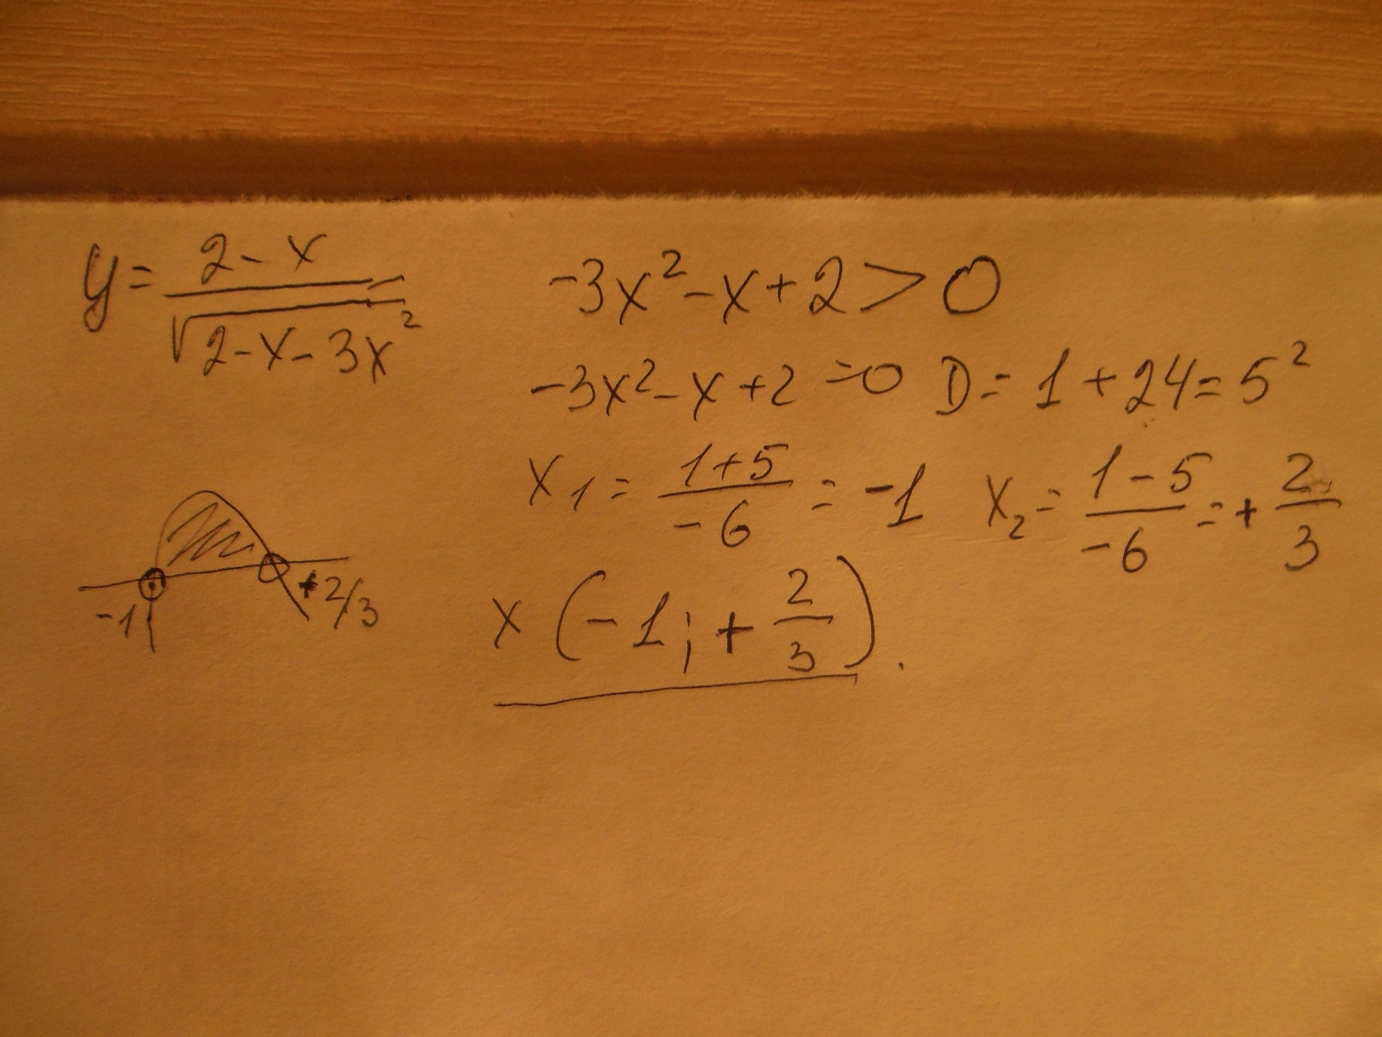 y = (2 - x) / √(2 - x - 3x²)
-3x² - x + 2 > 0
-3x² - x + 2 = 0 D = 1 + 24 = 5²
x₁ = (1 + 5) / -6 = -1 x₂ = (1 - 5) / -6 = + 2/3
-1 + 2/3
x (-1; + 2/3).